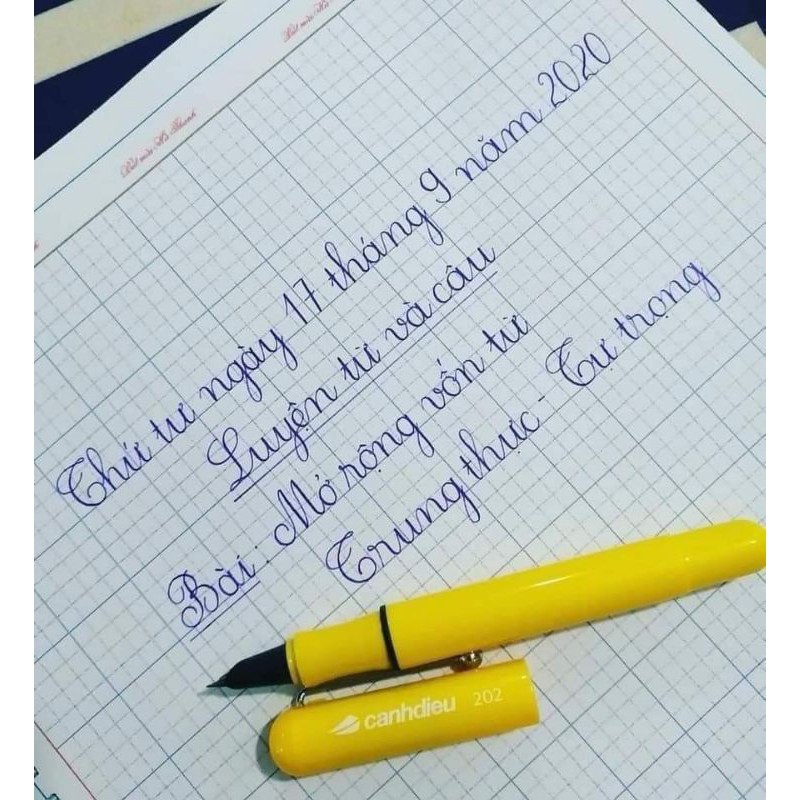 Bút mài Hà Thanh
Thứ tư ngày 17 tháng 9 năm 2020
Luyện từ và câu
Bài: Mở rộng vốn từ
Trung thực - Tự trọng
canhdieu 202